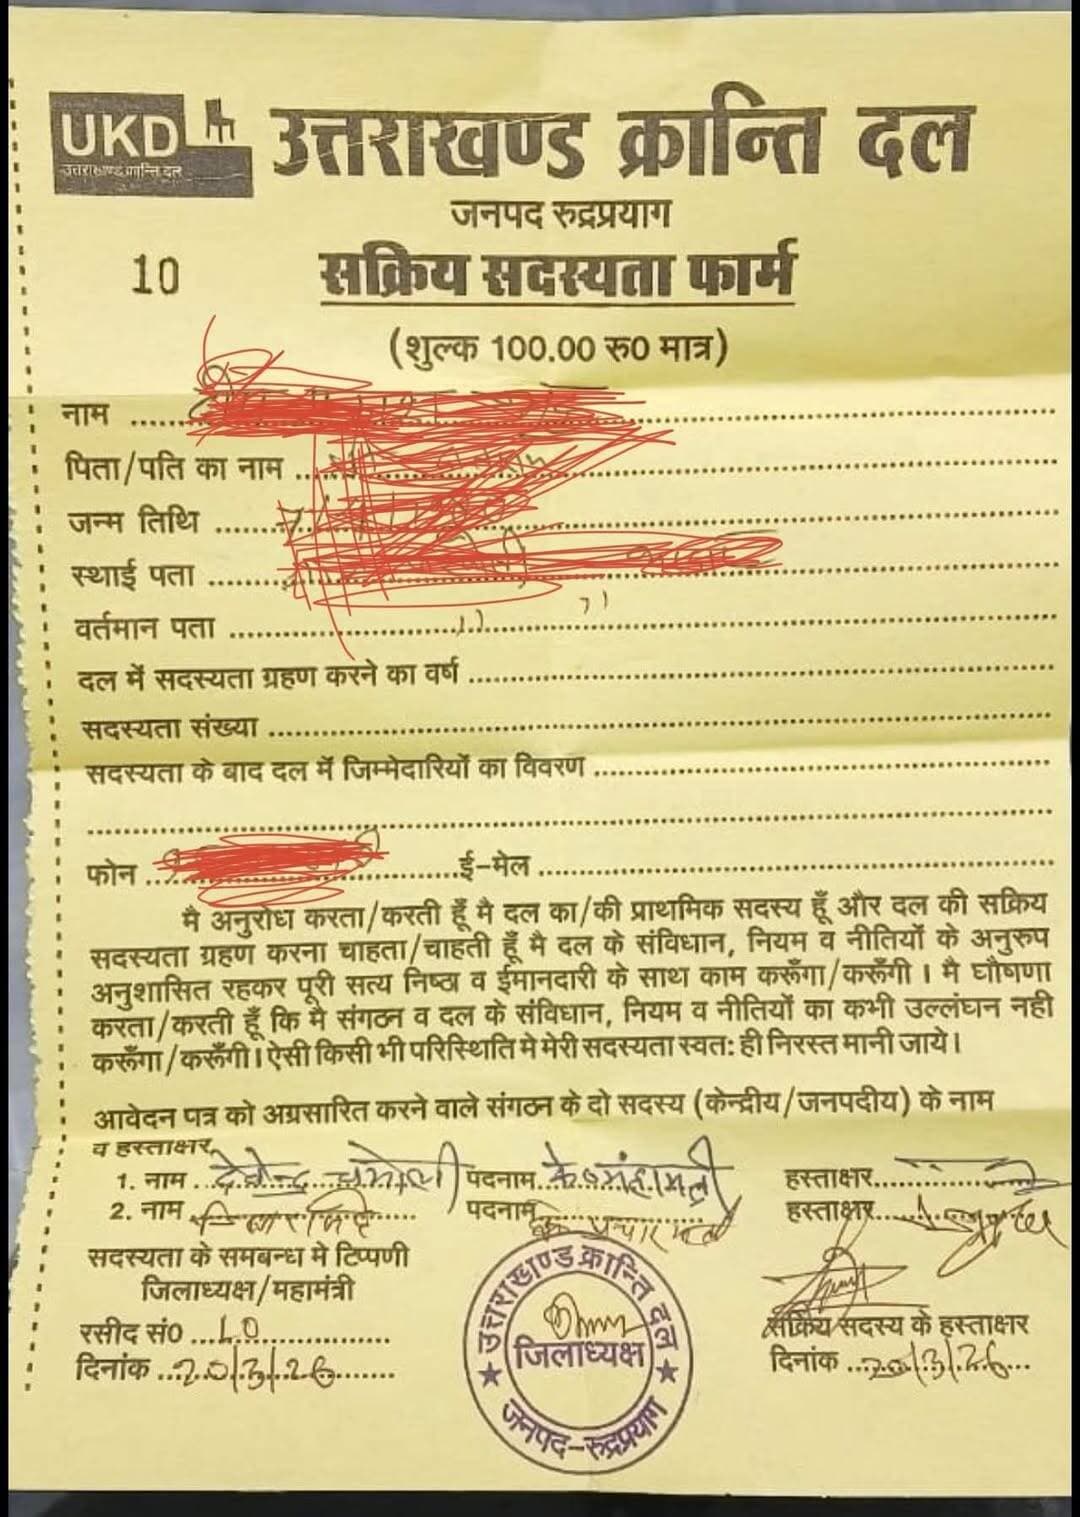 UKD
उत्तराखण्ड क्रान्ति दल
उत्तराखण्ड क्रान्ति दल
जनपद रुद्रप्रयाग
10
सक्रिय सदस्यता फार्म
(शुल्क 100.00 रु0 मात्र)
नाम
पिता/पति का नाम
जन्म तिथि
स्थाई पता
वर्तमान पता .. 11 11
दल में सदस्यता ग्रहण करने का वर्ष
सदस्यता संख्या
सदस्यता के बाद दल में जिम्मेदारियों का विवरण
फोन ई-मेल
मै अनुरोध करता/करती हूँ मै दल का/की प्राथमिक सदस्य हूँ और दल की सक्रिय
सदस्यता ग्रहण करना चाहता/चाहती हूँ मै दल के संविधान, नियम व नीतियों के अनुरुप
अनुशासित रहकर पूरी सत्य निष्ठा व ईमानदारी के साथ काम करूँगा/करूँगी । मै घौषणा
करता/करती हूँ कि मै संगठन व दल के संविधान, नियम व नीतियों का कभी उल्लंघन नही
करूँगा/करूँगी। ऐसी किसी भी परिस्थिति मे मेरी सदस्यता स्वत: ही निरस्त मानी जाये।
आवेदन पत्र को अग्रसारित करने वाले संगठन के दो सदस्य (केन्द्रीय/जनपदीय) के नाम
व हस्ताक्षर
1. नाम देवेन्द्र चमोली पदनाम के0 महामंत्री हस्ताक्षर
2. नाम पदनाम प्रचार हस्ताक्षर
सदस्यता के समबन्ध मे टिप्पणी
जिलाध्यक्ष/महामंत्री
उत्तराखण्ड क्रान्ति दल
जिलाध्यक्ष
जनपद-रुद्रप्रयाग
सक्रिय सदस्य के हस्ताक्षर
रसीद सं0 10
दिनांक 20/3/26 दिनांक 20/3/26